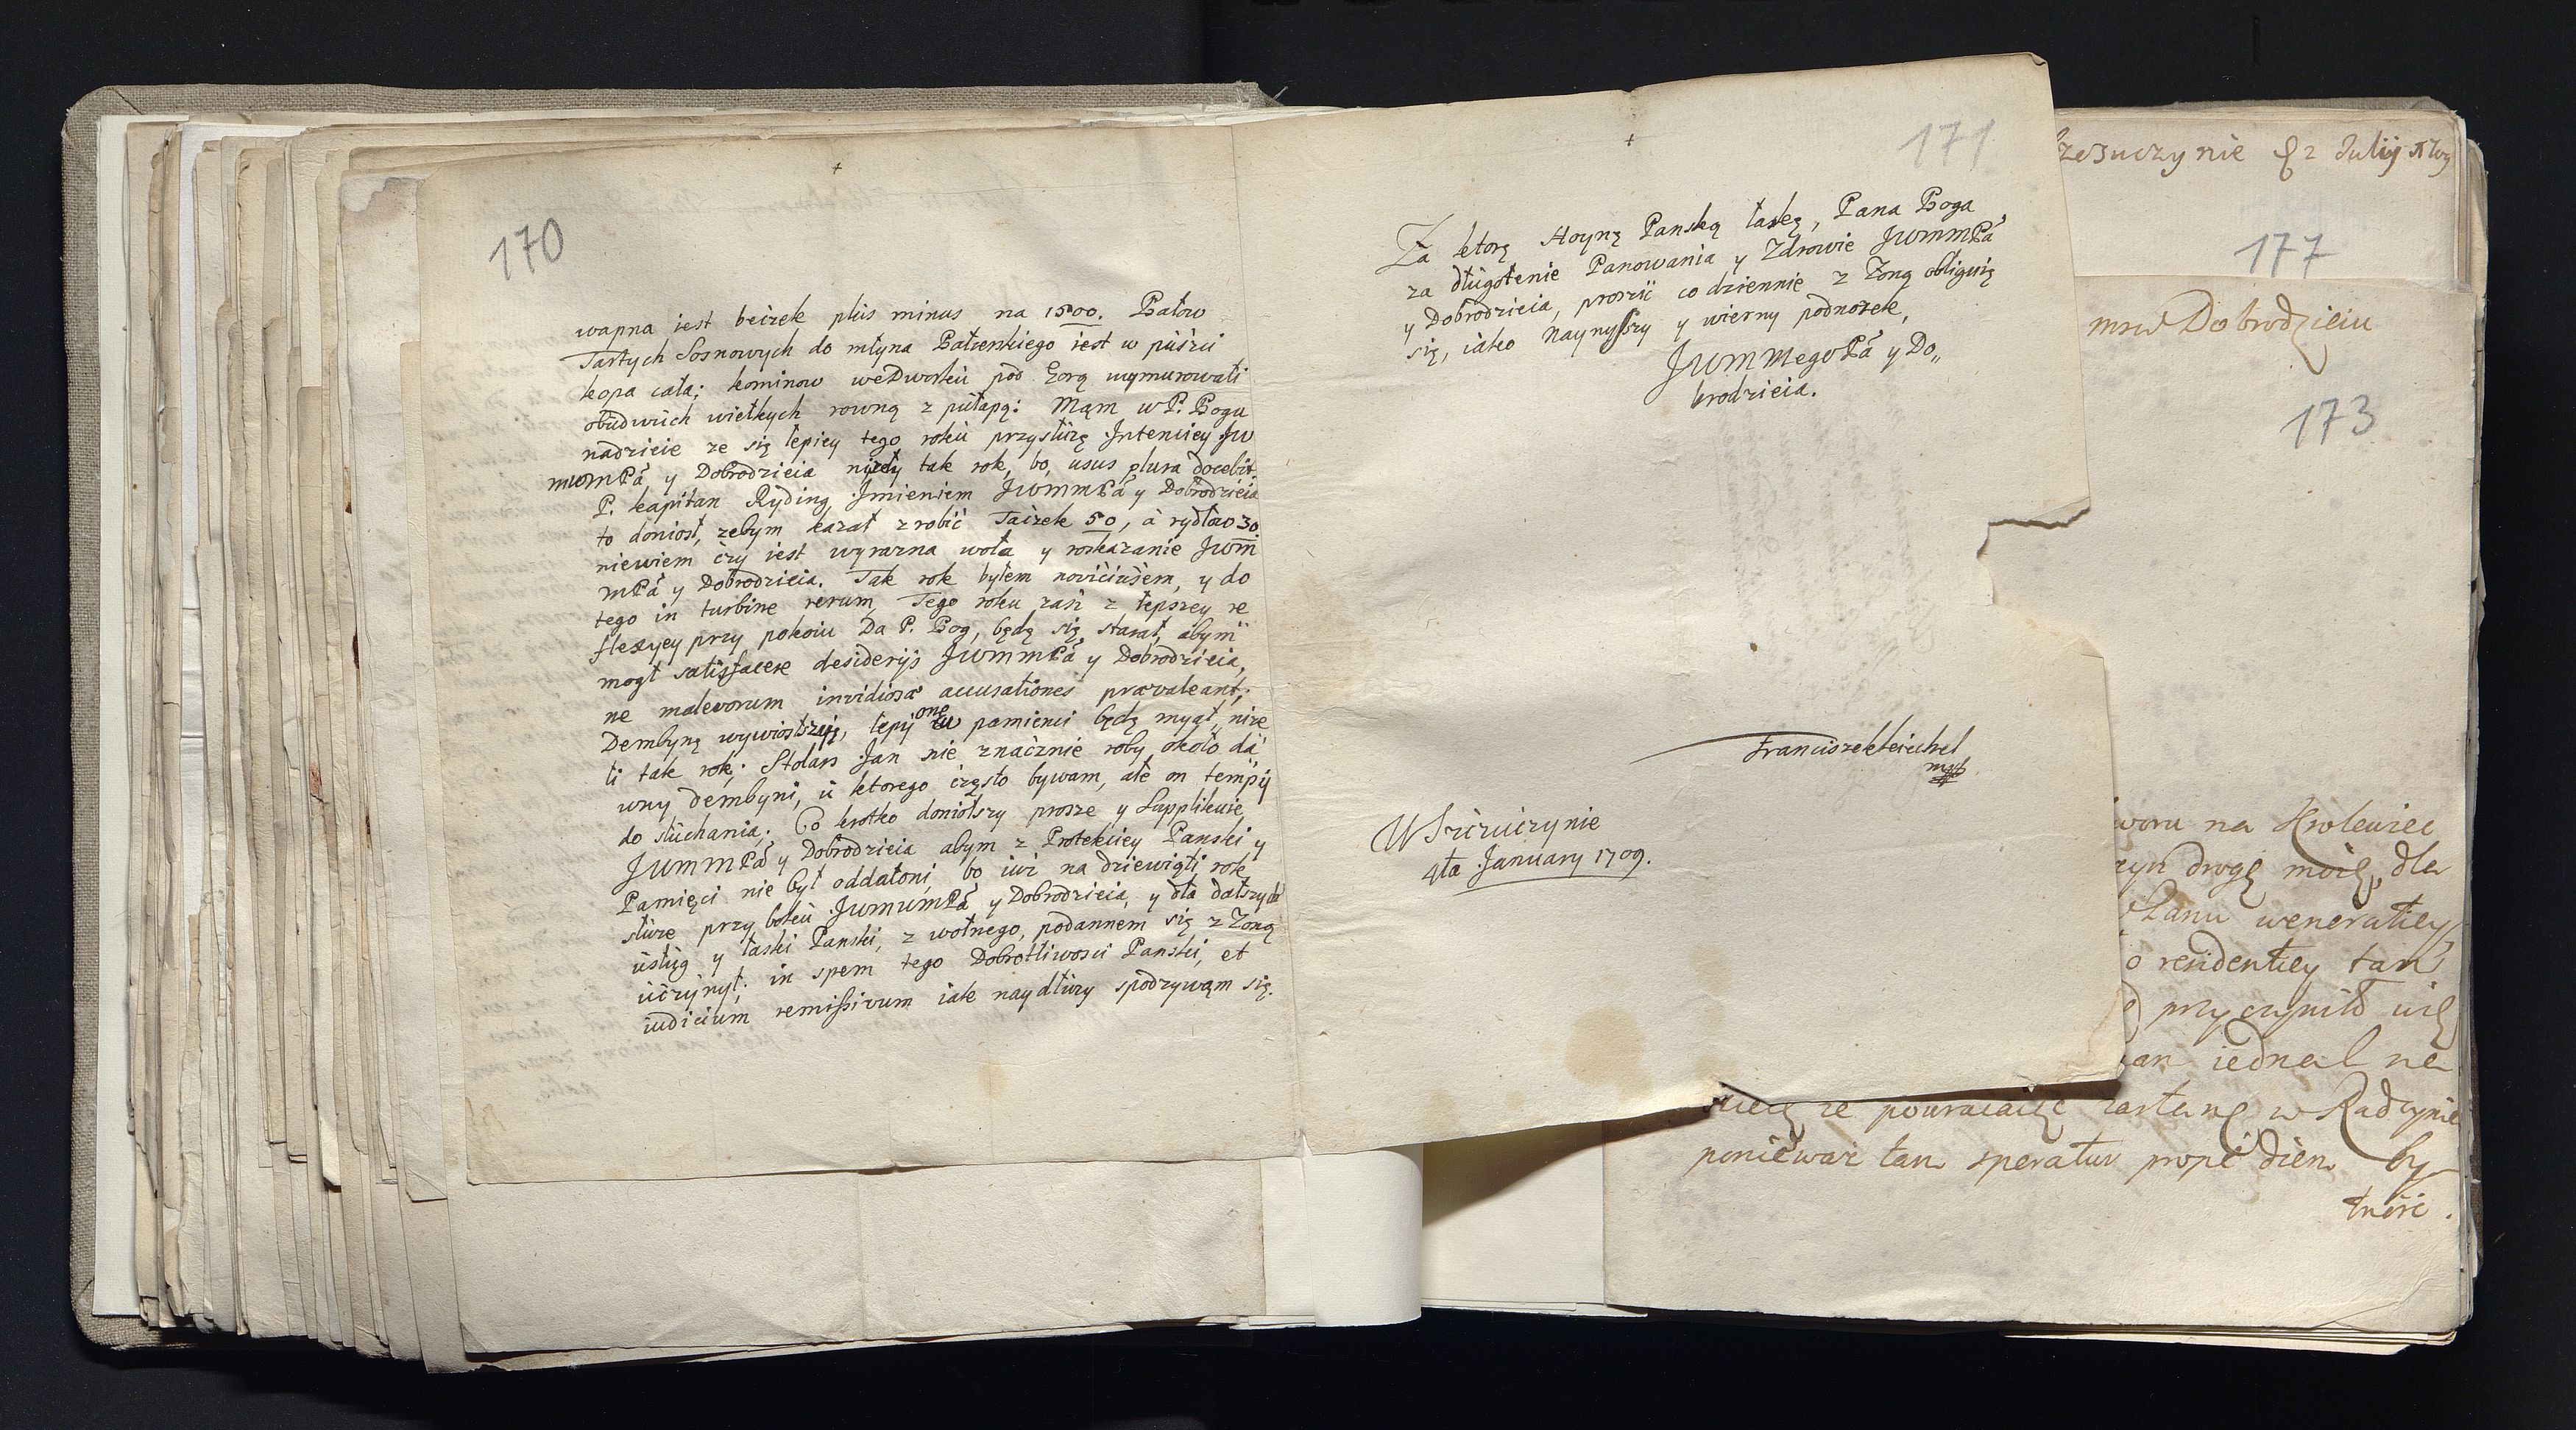 170
wapna iest beczek plus minus na 1500. Balow
Tartych Sosnowych do młyna Balzenkiego iest w puszci
kopa cała; kominow weDworku pod Gorą wymurowali
obudwuch wielkych rowną z pułapą: Mąm w P. Bogu
nadzieie ze się lepiey tego roku przysłuzę Intenciey JW
mwmPá y Dobrodzieia nizely tak rok, bo, usus plura docebit.
P. kapitan Ryding Imieniem JWmmPá y Dobrodzieia
to doniosł, zebym kazał zrobić Taczek 50, á rydlow 30.
niewiem czy iest wyrazna wola y roskazanie Jwm
mPá y Dobrodzieia. Tak rok byłem noviciusem, y do
tego in turbine rerum, Tego roku zasz z lepszey re
flexyey przy pokoiu Da P. Bog, będę się starał, abym
mogł satisfacere desiderijs JWmmPá y Dobrodzieia,
ne malevorum invidiosæ accusationes prævaleant;
Dembynę wywiosłszyię, lepij onę pamienci będę myął, nize
li tak rok; Stolarz Jan nie znacznie roby około da,
wny dembyni, u ktorego często bywam, ale on tempÿ
do słuchania; Co krotko doniołszy prosze y Supplikuie
JWmmPá y Dobrodzieia abym z Protekciey Panski y
Pamięci nie był oddaloni, bo iuz na dziewiąti rok
słuze przy boku JWmwmPá y Dobrodzieia, y dla dalszych
usług y łaski Panski, z wolnego, podannem się z Zoną
uczynył; in spem tego Dobrotliwosci Panski, et
iudicium remissivum iak naydłuzy spodzywąm się.
171
Za ktorę Hoynę Panską laskę, Pana Boga
za długołenie Panowania y Zdrowie JWmmPá
y Dobrodzieia, proszić codziennie z Zoną obliguię
się, iako Naynyszy y wierny podnozek,
JWmMegoPá y Do,,
brodzieia.
Franciszek
mpp
W Szczuczynie
4ta January 1709.
2 Julij
177
mw Dobrodzieiu
173
woru na Krolewiec
drogę moię, dla
weneratiey
o residentiey tam
przyczynił
iednak na
ze powracaiąc zastanę w Radzynie
poniewaz tam speratur prope diem by-
tność.